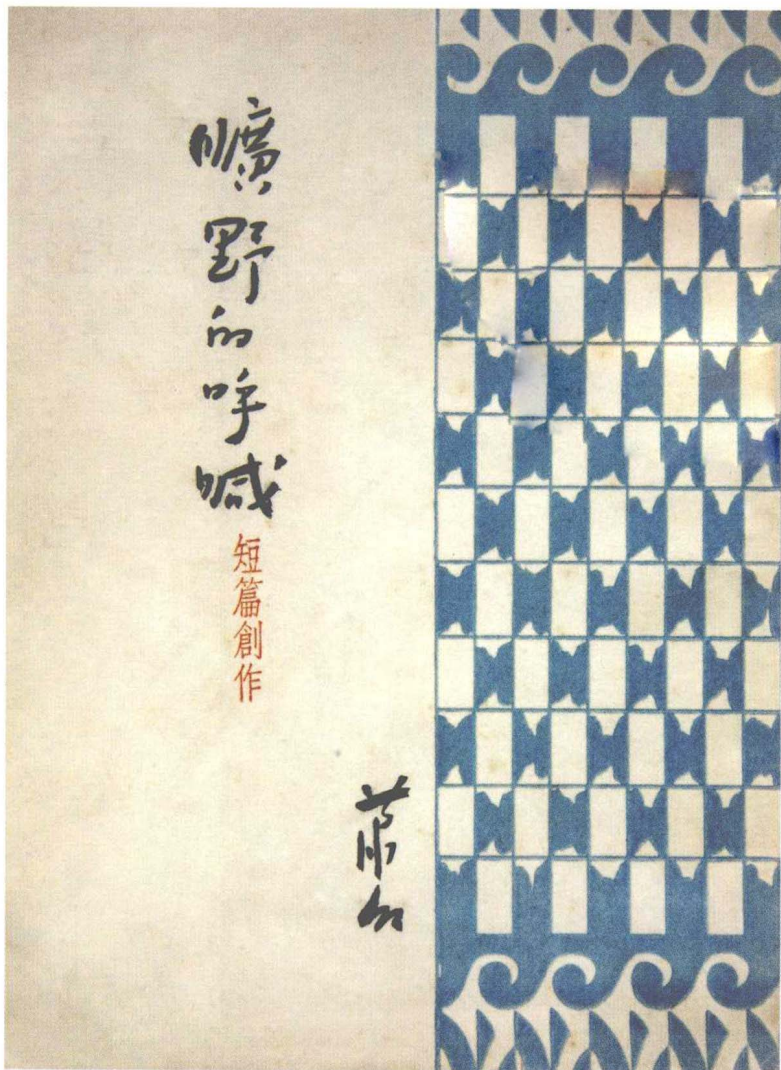 曠野的呼喊
短篇創作
蕭紅